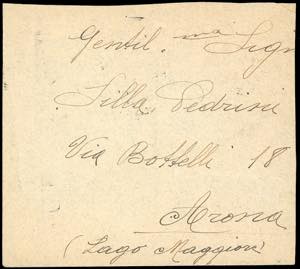 Gentil.ma Sign
Lilla Pedrini
Via Bottelli 18
Arona
(Lago Maggiore)